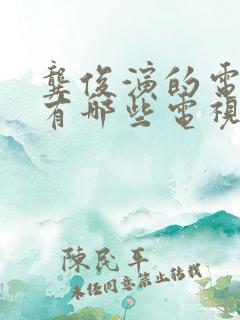 龔俊演的電
有哪些電視
陳民平
未經同意禁止轉載